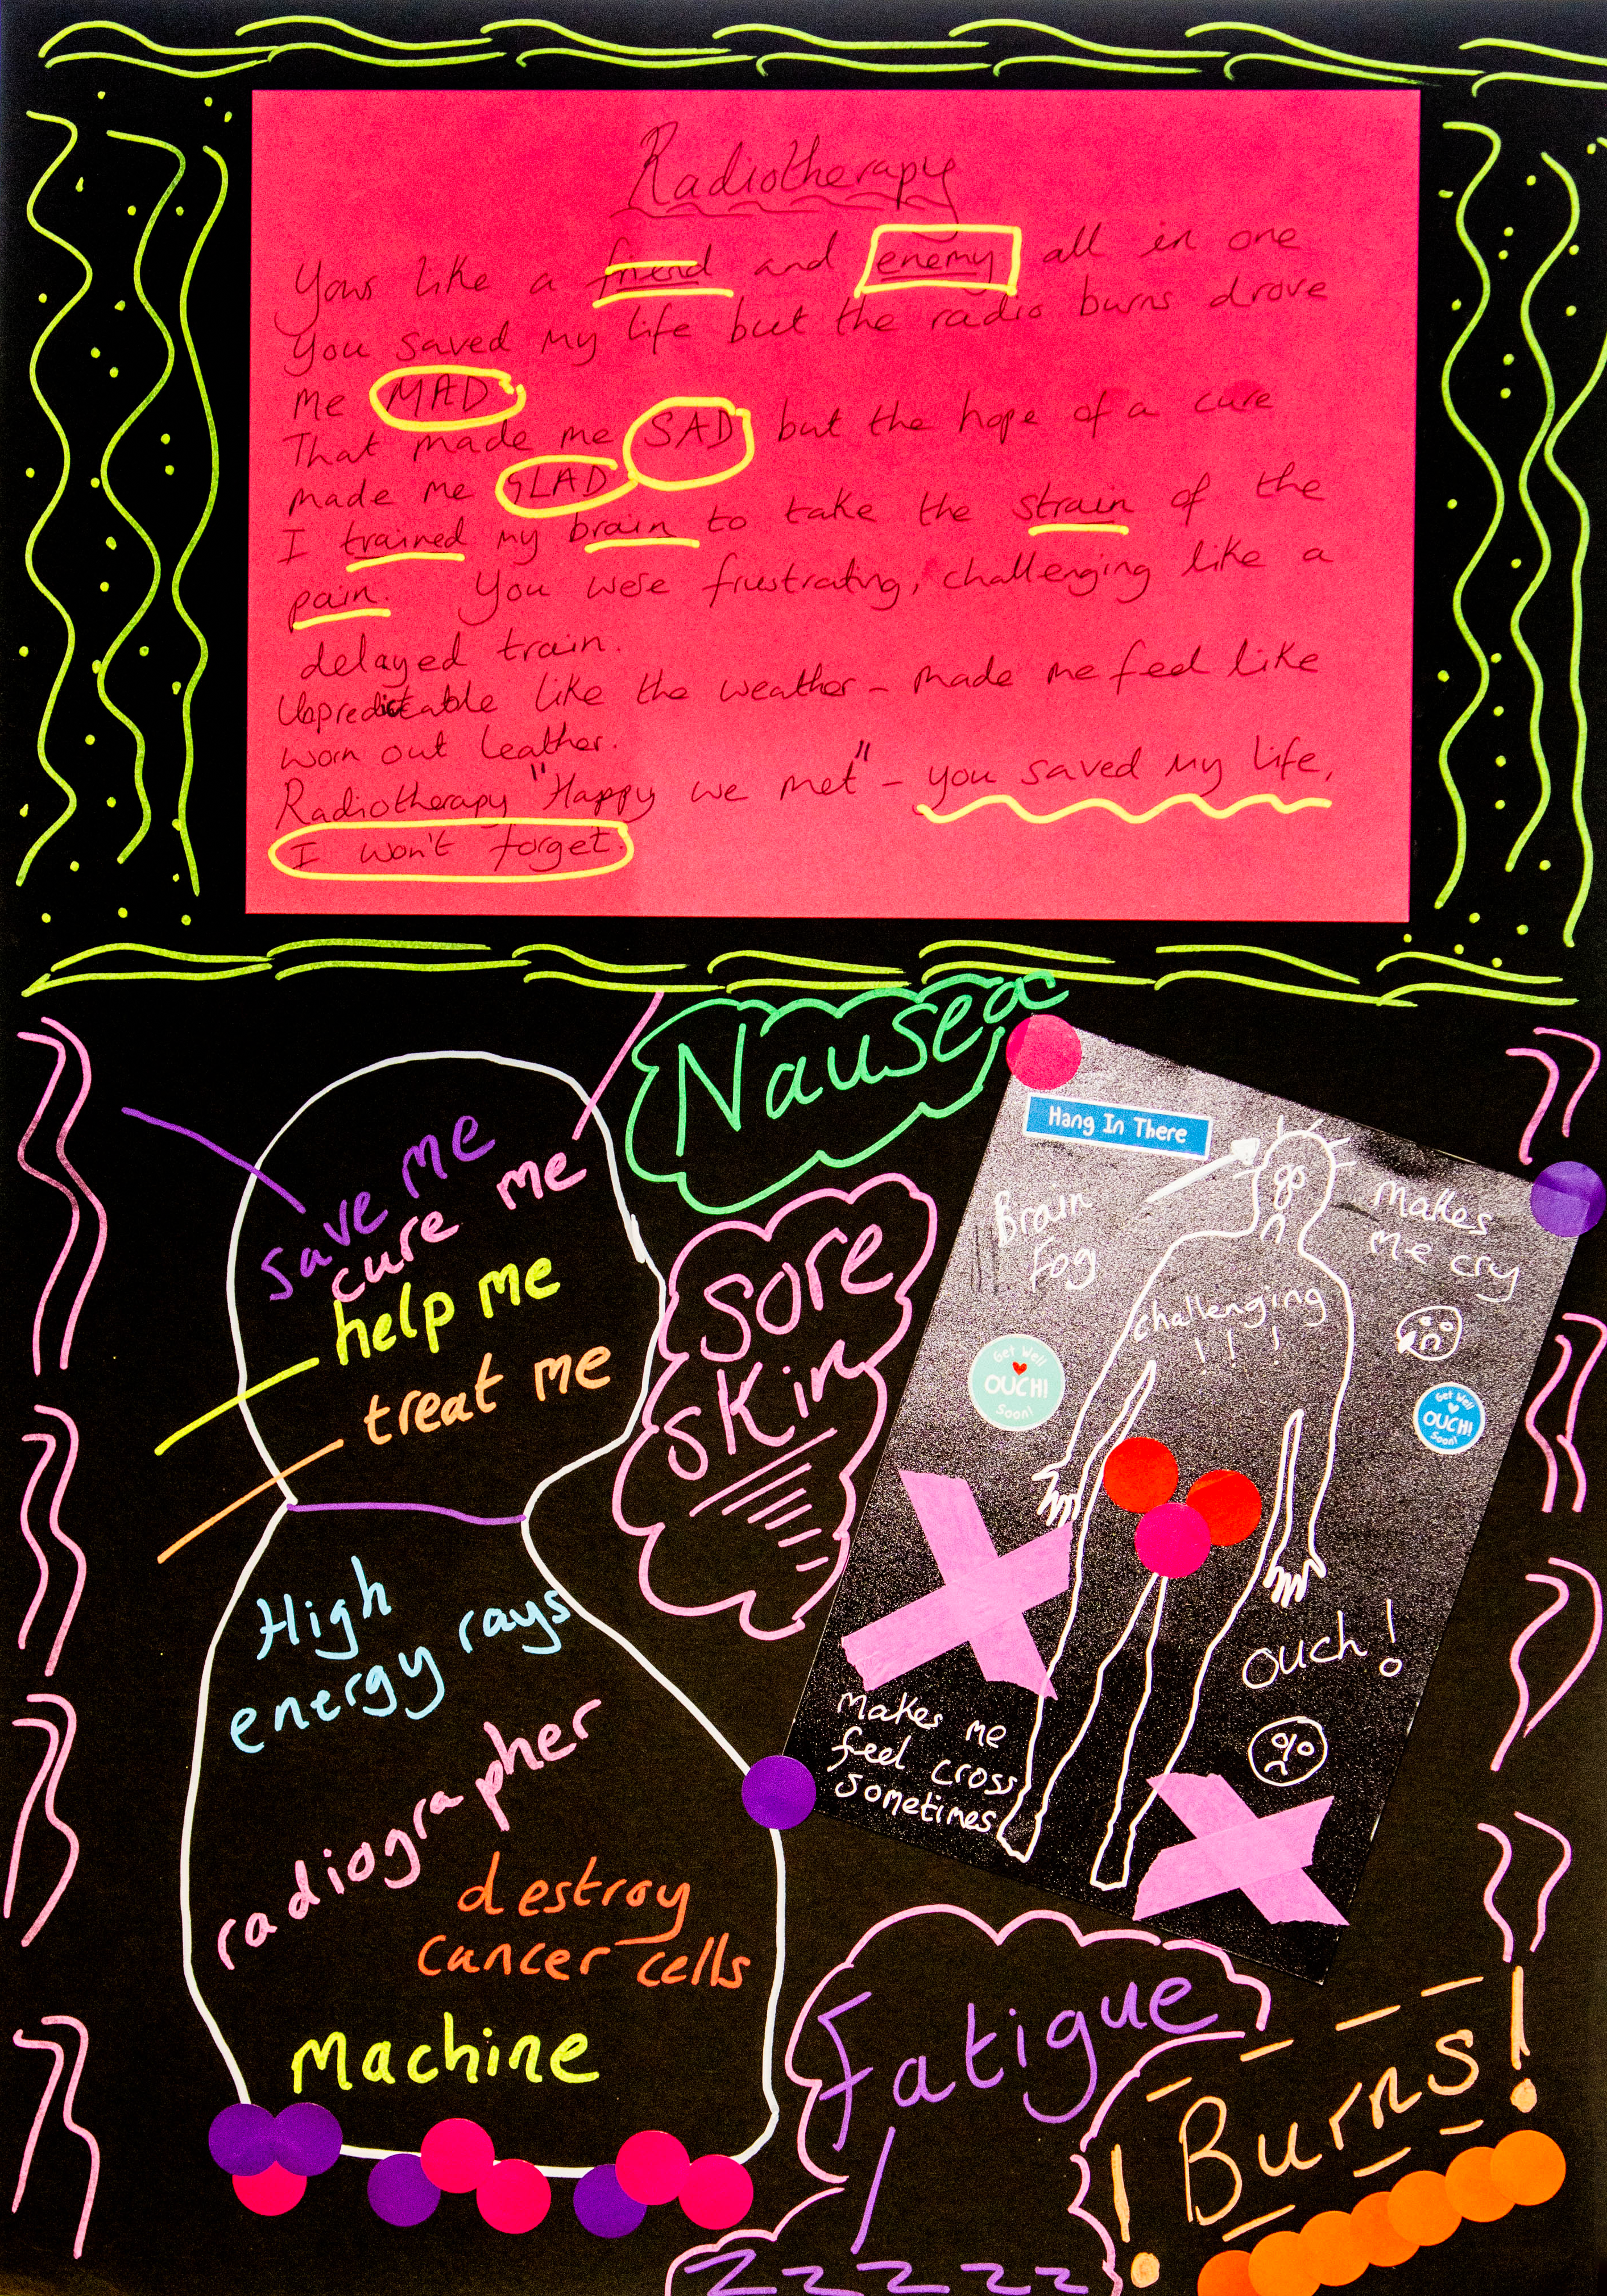 Radiotherapy
Your like a friend and enemy all in one
You saved my life but the radio burns drove
me MAD
That made me SAD but the hope of a cure
made me GLAD
I trained my brain to take the strain of the
pain. You were frustrating, challenging like a
delayed train.
Unpredictable like the weather - made me feel like
worn out leather.
Radiotherapy "Happy we met" - you saved my life,
I won't forget.
Nausea
save me
cure me
help me
treat me
Sore
skin
Hang In There
Brain
Fog
Makes
me cry
challenging
! ! !
Get Well
OUCH!
Soon!
Get Well
OUCH!
Soon!
ouch!
Makes me
feel cross
sometimes
High
energy rays
radiographer
destroy
cancer cells
Machine
Fatigue
zzzzz
! Burns!